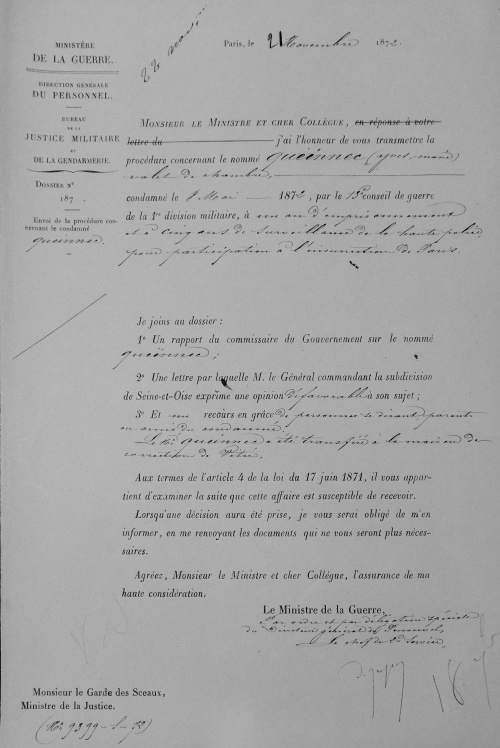 MINISTÈRE
DE LA GUERRE.
DIRECTION GÉNÉRALE
DU PERSONNEL.
BUREAU
DE LA
JUSTICE MILITAIRE
ET
DE LA GENDARMERIE.
DOSSIER N°
187 .
Envoi de la procédure con-
cernant le condamné
queïnnec.
Paris, le 21 Novembre 1872.
MONSIEUR LE MINISTRE ET CHER COLLÈGUE, en réponse à votre
lettre du j'ai l'honneur de vous transmettre la
procédure concernant le nommé queïnnec (yves-marie)
valet de chambre,
condamné le 8 Mai 1872, par le 13e conseil de guerre
de la 1re division militaire, à un an d'emprisonnement
et à cinq ans de surveillance de la haute police
pour participation à l'insurrection de Paris.
Je joins au dossier :
1° Un rapport du commissaire du Gouvernement sur le nommé
queïnnec;
2° Une lettre par laquelle M. le Général commandant la subdivision
de Seine-et-Oise exprime une opinion défavorable à son sujet ;
3° Et un recours en grâce de personnes se disant parents
ou amis du condamné.
Le né queïnnec a été transféré à la maison de
correction de Vitré.
Aux termes de l'article 4 de la loi du 17 juin 1871, il vous appar-
tient d'examiner la suite que cette affaire est susceptible de recevoir.
Lorsqu'une décision aura été prise, je vous serai obligé de m'en
informer, en me renvoyant les documents qui ne vous seront plus néces-
saires.
Agréez, Monsieur le Ministre et cher Collègue, l'assurance de ma
haute considération.
Le Ministre de la Guerre,
Par ordre et par délégation spéciale
du Directeur général du Personnel,
Le chef du Service,
Monsieur le Garde des Sceaux,
Ministre de la Justice.
9399-S-72)